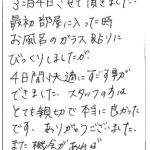 3泊4日させて頂きました。
最初部屋に入って時
お風呂のガラス貼りに
びっくりしましたが
4日間快適にすごす事が
できました。スタッフの方は
とても親切で本当に良かった
です、ありがとうございました。
また機会があれば